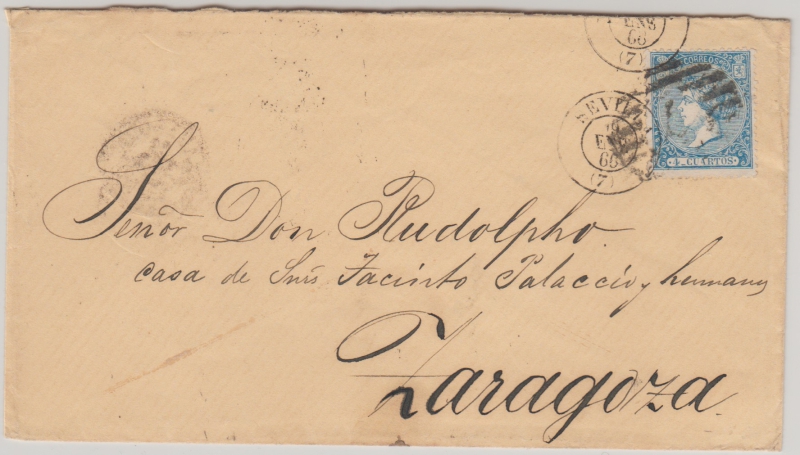 ENE
66
(7)
CORREOS
4 CUARTOS
SEVILLA
ENE
66
(7)
Señor Don Rudolpho.
casa de Luis Jacinto Palaccio y hermano
Zaragoza.